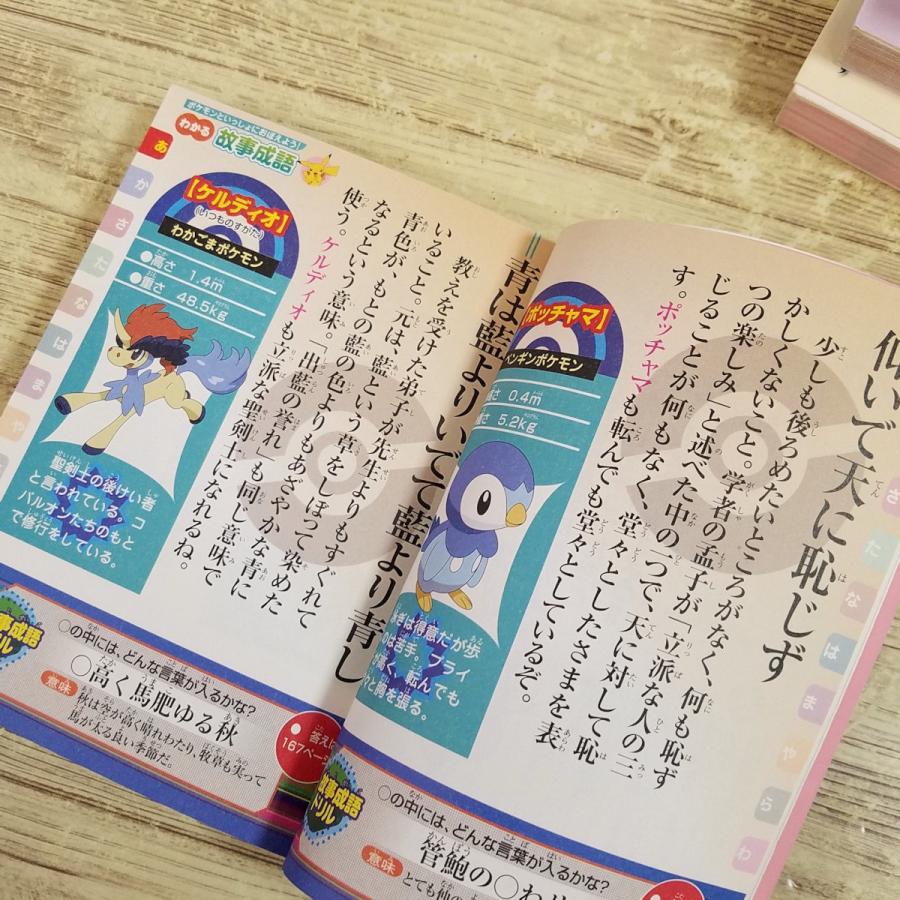 仰いで天に恥じず
少しも後ろめたいところがなく、何も恥ず
かしくないこと。学者の孟子が「立派な人の三
つの楽しみ」と述べた中の一つで、天に対して恥
じることが何もなく、堂々としたさまを表
す。ポッチャマも転んでも堂々としているぞ。
【ポッチャマ】
ペンギンポケモン
0.4m
5.2kg
は得意だが歩
のは苦手。プライ
が高く、転んでも
々と胸を張る。
さ
た
な
は
ま
や
ら
わ
故事成語
ドリル
○の中には、どんな言葉が入るかな?
管鮑の○わ
意味
ポケモンといっしょにおぼえよう!
わかる
故事成語
あ
か
さ
た
な
は
ま
や
青は藍よりいでて藍より青し
教えを受けた弟子が先生よりもすぐれて
いること。元は、藍という草をしぼって染めた
青色が、もとの藍の色よりもあざやかな青に
なるという意味。「出藍の誉れ」も同じ意味で
使う。ケルディオも立派な聖剣士になれるね。
【ケルディオ】
(いつものすがた)
わかごまポケモン
●高さ 1.4m
●重さ 48.5kg
聖剣士の後けい者
と言われている。コ
バルオンたちのもと
で修行をしている。
故事成語
ドリル
○の中には、どんな言葉が入るかな?
○高く馬肥ゆる秋
意味
秋は空が高く晴れわたり、牧草も実って
馬が太る良い季節だ。
答えは
167ページ